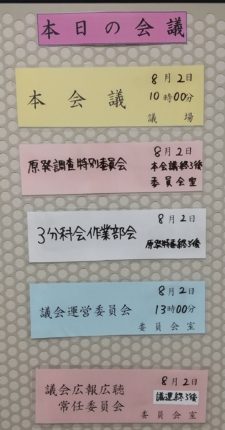 本日の会議
8月2日
本会議
10時00分
議場
8月2日
原発調査特別委員会
本会議終了後
委員会室
8月2日
3分科会作業部会
原発特委終了後
8月2日
議会運営委員会
13時00分
委員会室
8月2日
議会広報広聴
常任委員会
議運終了後
委員会室